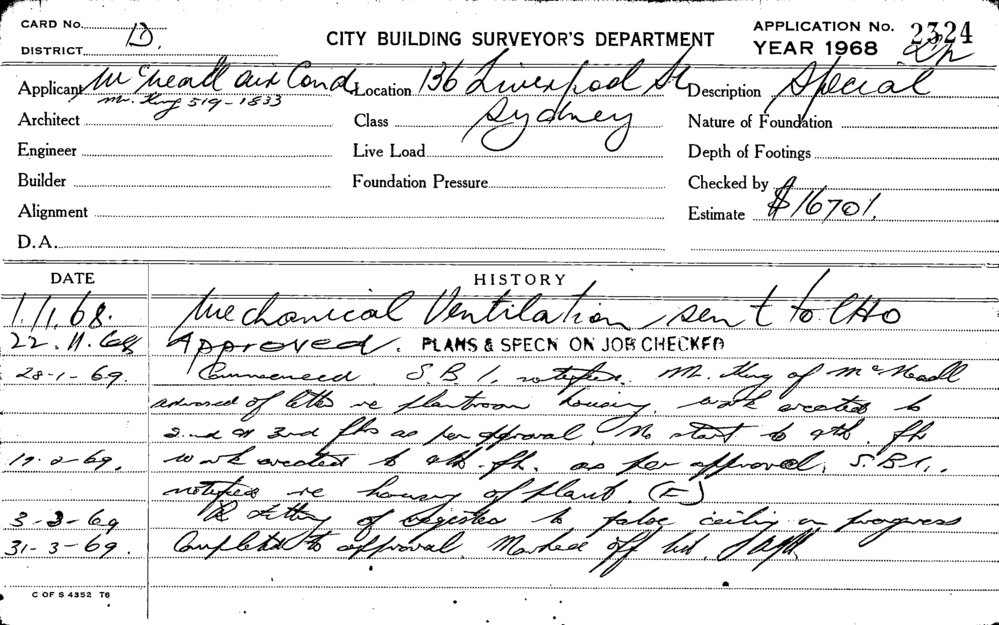 CARD No.
DISTRICT D.
CITY BUILDING SURVEYOR'S DEPARTMENT
APPLICATION No. 2324
YEAR 1968
Applicant McNeall air Cond Location 136 Liverpool St Description Special
Mr. King 519-1833
Sydney
Architect Class Nature of Foundation
Engineer Live Load Depth of Footings
Builder Foundation Pressure Checked by
Alignment Estimate $16701.
D.A.
DATE HISTORY
1.11.68. Mechanical Ventilation sent to CHO
22.11.68 Approved. PLANS & SPECN ON JOB CHECKED
28-1-69. Commenced. S.B.I. notified. Mr. King of McNeall
advised of letter re plantroom housing. work erected to
2nd & 3rd flrs as per approval. No start to 4th. flr
19-2-69. work erected to 4th. flr. as per approval. S.B.I.
notified re housing of plant. (E)
3-3-69 fitting of registers to false ceiling in progress
31-3-69. Completed to approval. Marked off
C OF S 4352 T6